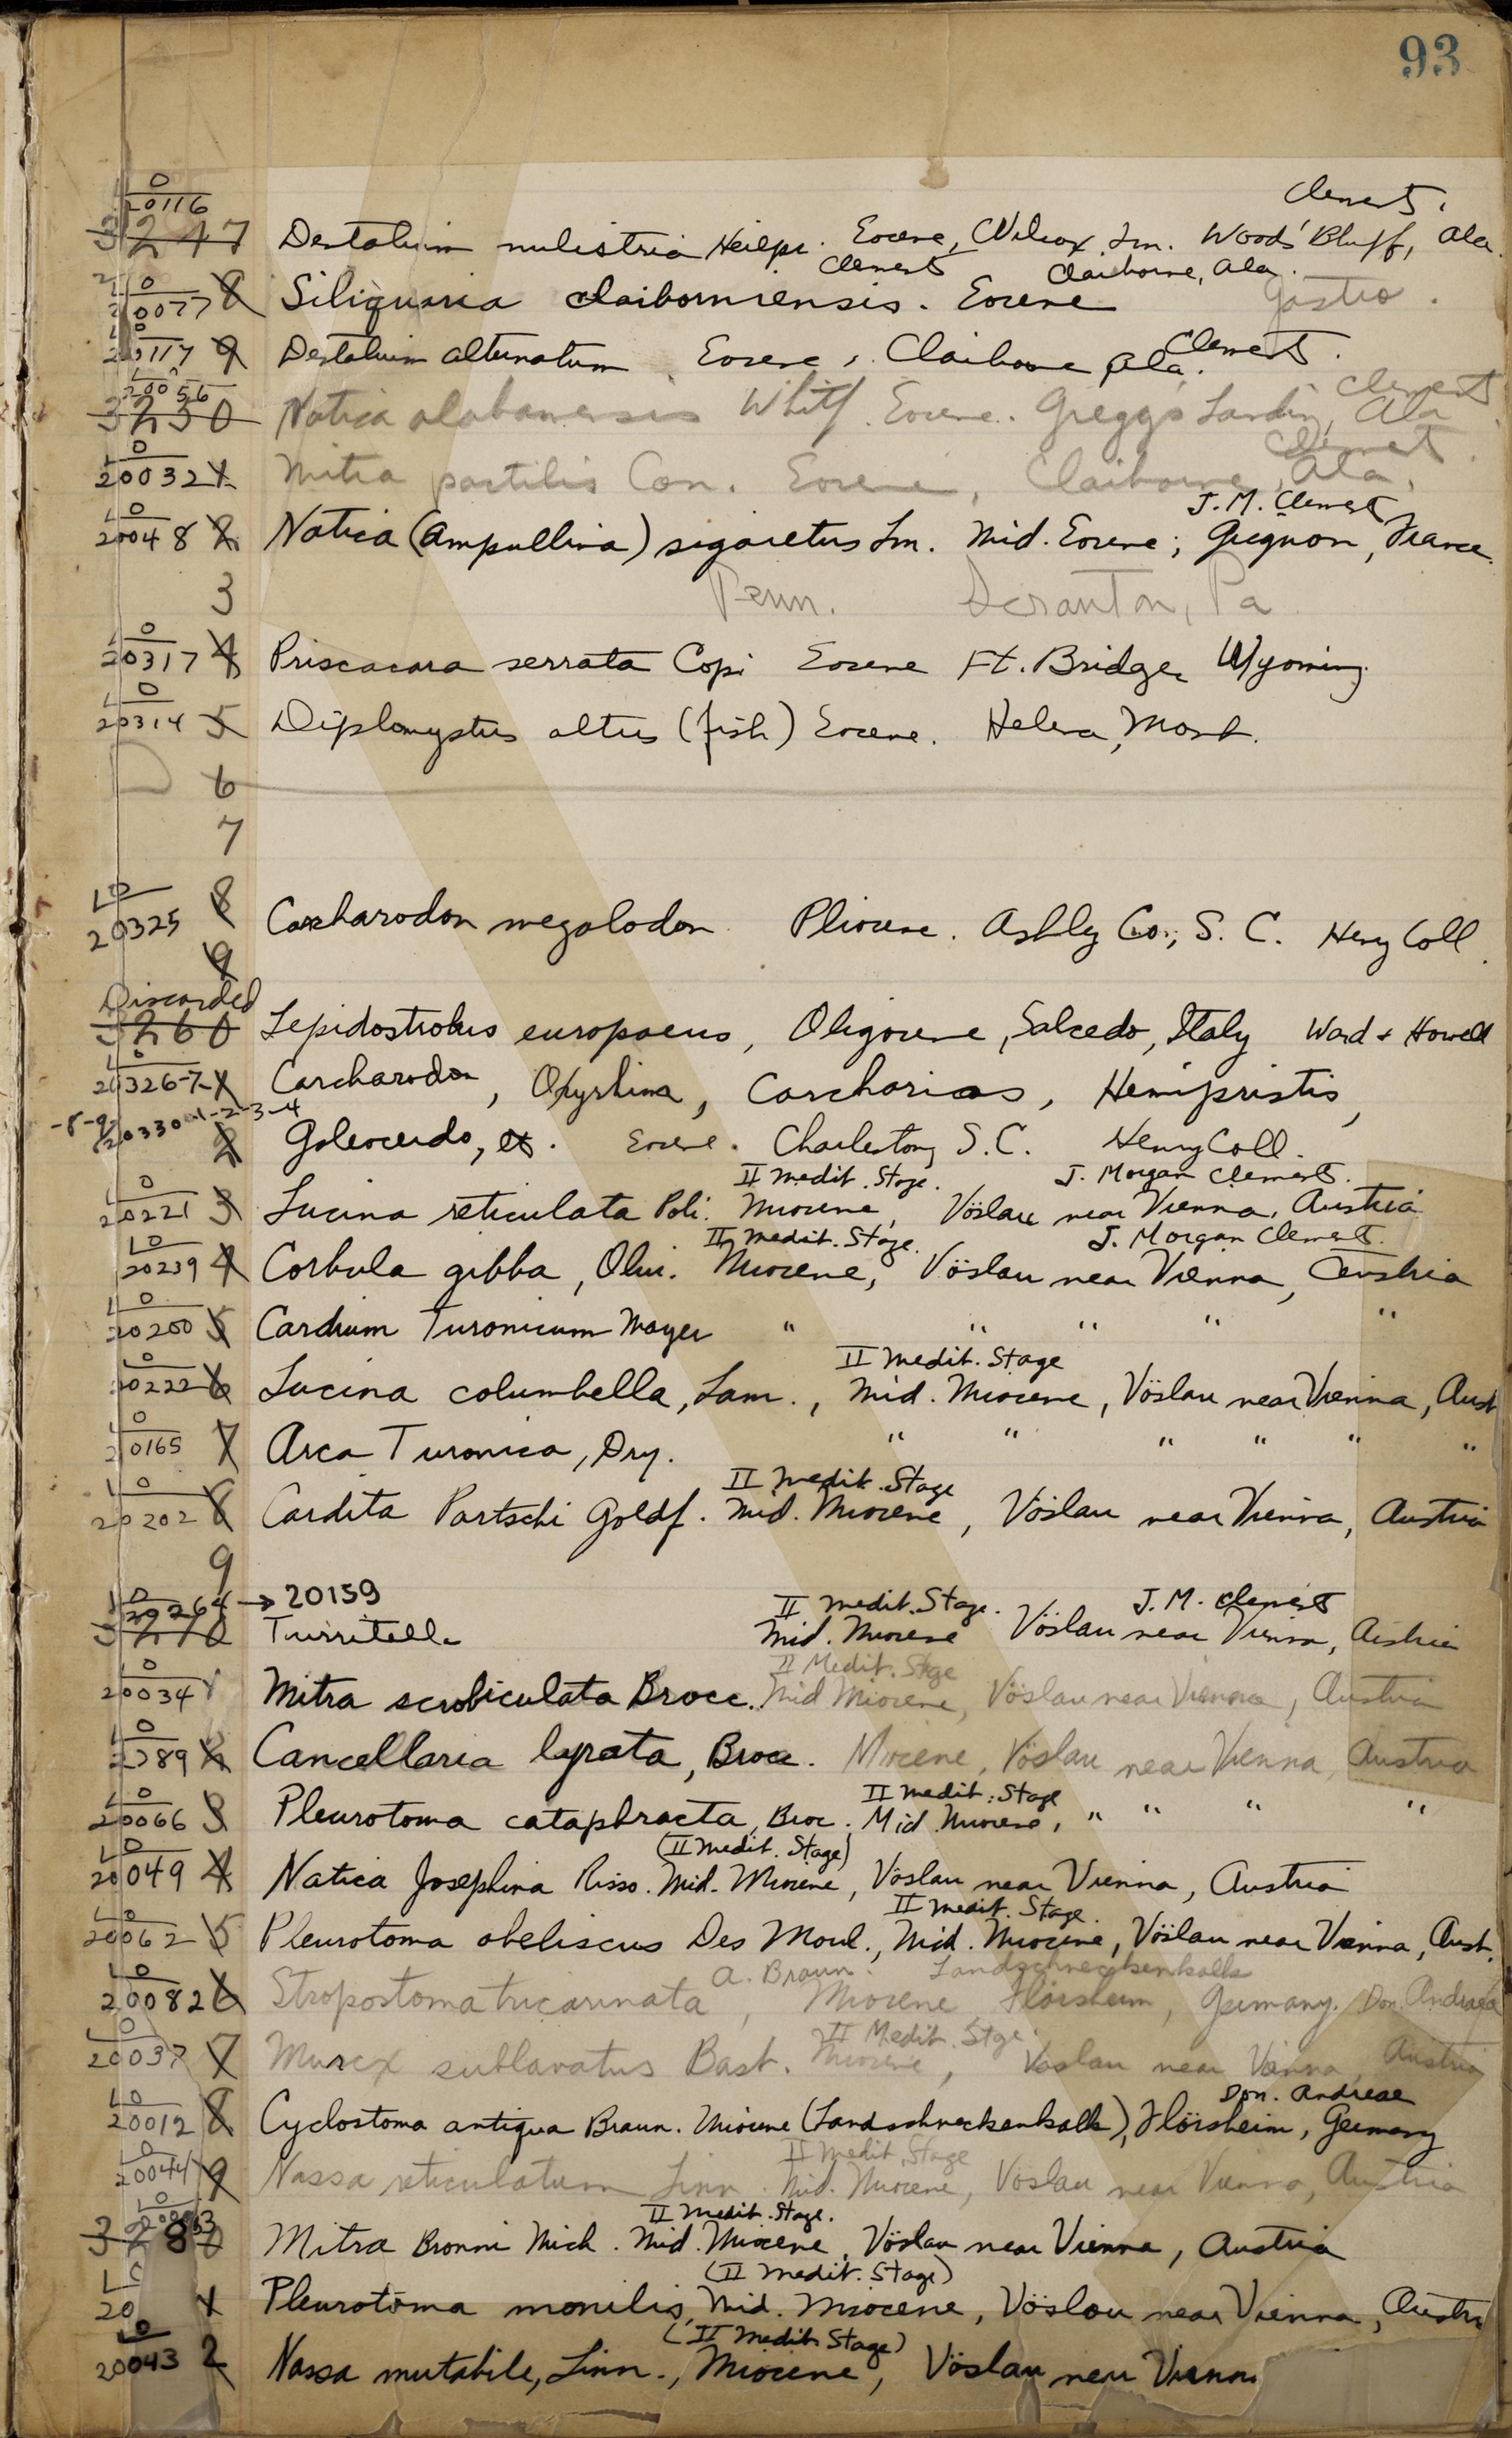 93
LO
20116 Clements.
3247 Dentalium nulistria Heilpr. Eocene, Wilcox Fm. Woods' Bluff, Ala.
Clements Claiborne, Ala.
LO
20077 8 Siliquaria claibornensis. Eocene Gastro.
LO
20117 9 Dentalium alternatum Eocene, Claiborne Ala. Clements.
LO
20056 Clements
3250 Natica alabamensis Whitf. Eocene. Greggs Landin, Ala
LO Clements.
20032 1 Mitra pactilis Con. Eocene, Claiborne, Ala.
LO J. M. Clements
20048 2 Natica (Ampullina) sigaretus Lm. Mid. Eocene; Grignon, France.
3 Penn. Scranton, Pa
LO
20317 4 Priscacara serrata Cope Eocene Ft. Bridger Wyoming.
LO
20314 5 Diplomystus altus (fish) Eocene. Helena, Mont.
6
7
LO
20325 8 Carcharodon megalodon Pliocene. Ashly Co., S. C. Henry Coll.
9
Discarded
3260 Lepidostrobus europaeus, Oligocene, Salcedo, Italy Ward & Howell
LO
20326-7- 1 Carcharodon, Oxyrhina, Carcharias, Hemipristis,
-8-9-20330-1-2-3-4
2 Galeocerdo, etc. Eocene. Charleston, S.C. Henry Coll.
II Medit. Stage. J. Morgan Clements.
LO
20221 3 Lucina reticulata Poli. Miocene, Vöslau near Vienna, Austria
II Medit. Stage. J. Morgan Clements.
LO
20239 4 Corbula gibba, Olivi. Miocene, Vöslau near Vienna, Austria
LO
20200 5 Cardium Turonicum Mayer " " " " "
LO II Medit. Stage
20222 6 Lucina columbella, Lam., Mid. Miocene, Vöslau near Vienna, Aust
LO
20165 7 Arca Turonica, Drj. " " " " " "
LO II Medit. Stage
20202 8 Cardita Partschi Goldf. Mid. Miocene, Vöslau near Vienna, Austria
9
LO
20264 → 20159 II Medit. Stage. J. M. Clements
3270 Turritella Mid. Miocene Vöslau near Vienna, Austria
LO II Medit. Stge
20034 1 Mitra scrobiculata Brocc. Mid Miocene, Vöslau near Vienna, Austria
LO
2789 2 Cancellaria lyrata, Brocc. Miocene, Vöslau near Vienna, Austria
LO II Medit. Stage
20066 3 Pleurotoma cataphracta, Broc. Mid Miocene, " " " "
LO (II Medit. Stage)
20049 4 Natica Josephina Risso. Mid. Miocene, Vöslau near Vienna, Austria
LO II Medit. Stage.
20062 5 Pleurotoma obeliscus Des Moul., Mid. Miocene, Vöslau near Vienna, Aust.
LO A. Braun. Landschneckenkalk
20082 6 Stropostoma tricarinata, Miocene Flörsheim, Germany. Don. Andreae
LO II Medit. Stge.
20037 7 Murex sublavatus Bast. Miocene, Vöslau near Vienna, Austria
LO Don. Andreae
20012 8 Cyclostoma antiqua Braun. Miocene (Landschneckenkalk), Flörsheim, Germany
LO II Medit. Stage
20044 9 Nassa reticulatum Linn. Mid. Miocene, Vöslau near Vienna, Austria
LO II Medit. Stage.
3280 Mitra Bronni Mich. Mid. Miocene, Vöslau near Vienna, Austria
(II Medit. Stage)
20 1 Pleurotoma monilis, Mid. Miocene, Vöslau near Vienna, Austri
(II Medit. Stage)
20043 2 Nassa mutabile, Linn., Miocene, Vöslau near Vienna